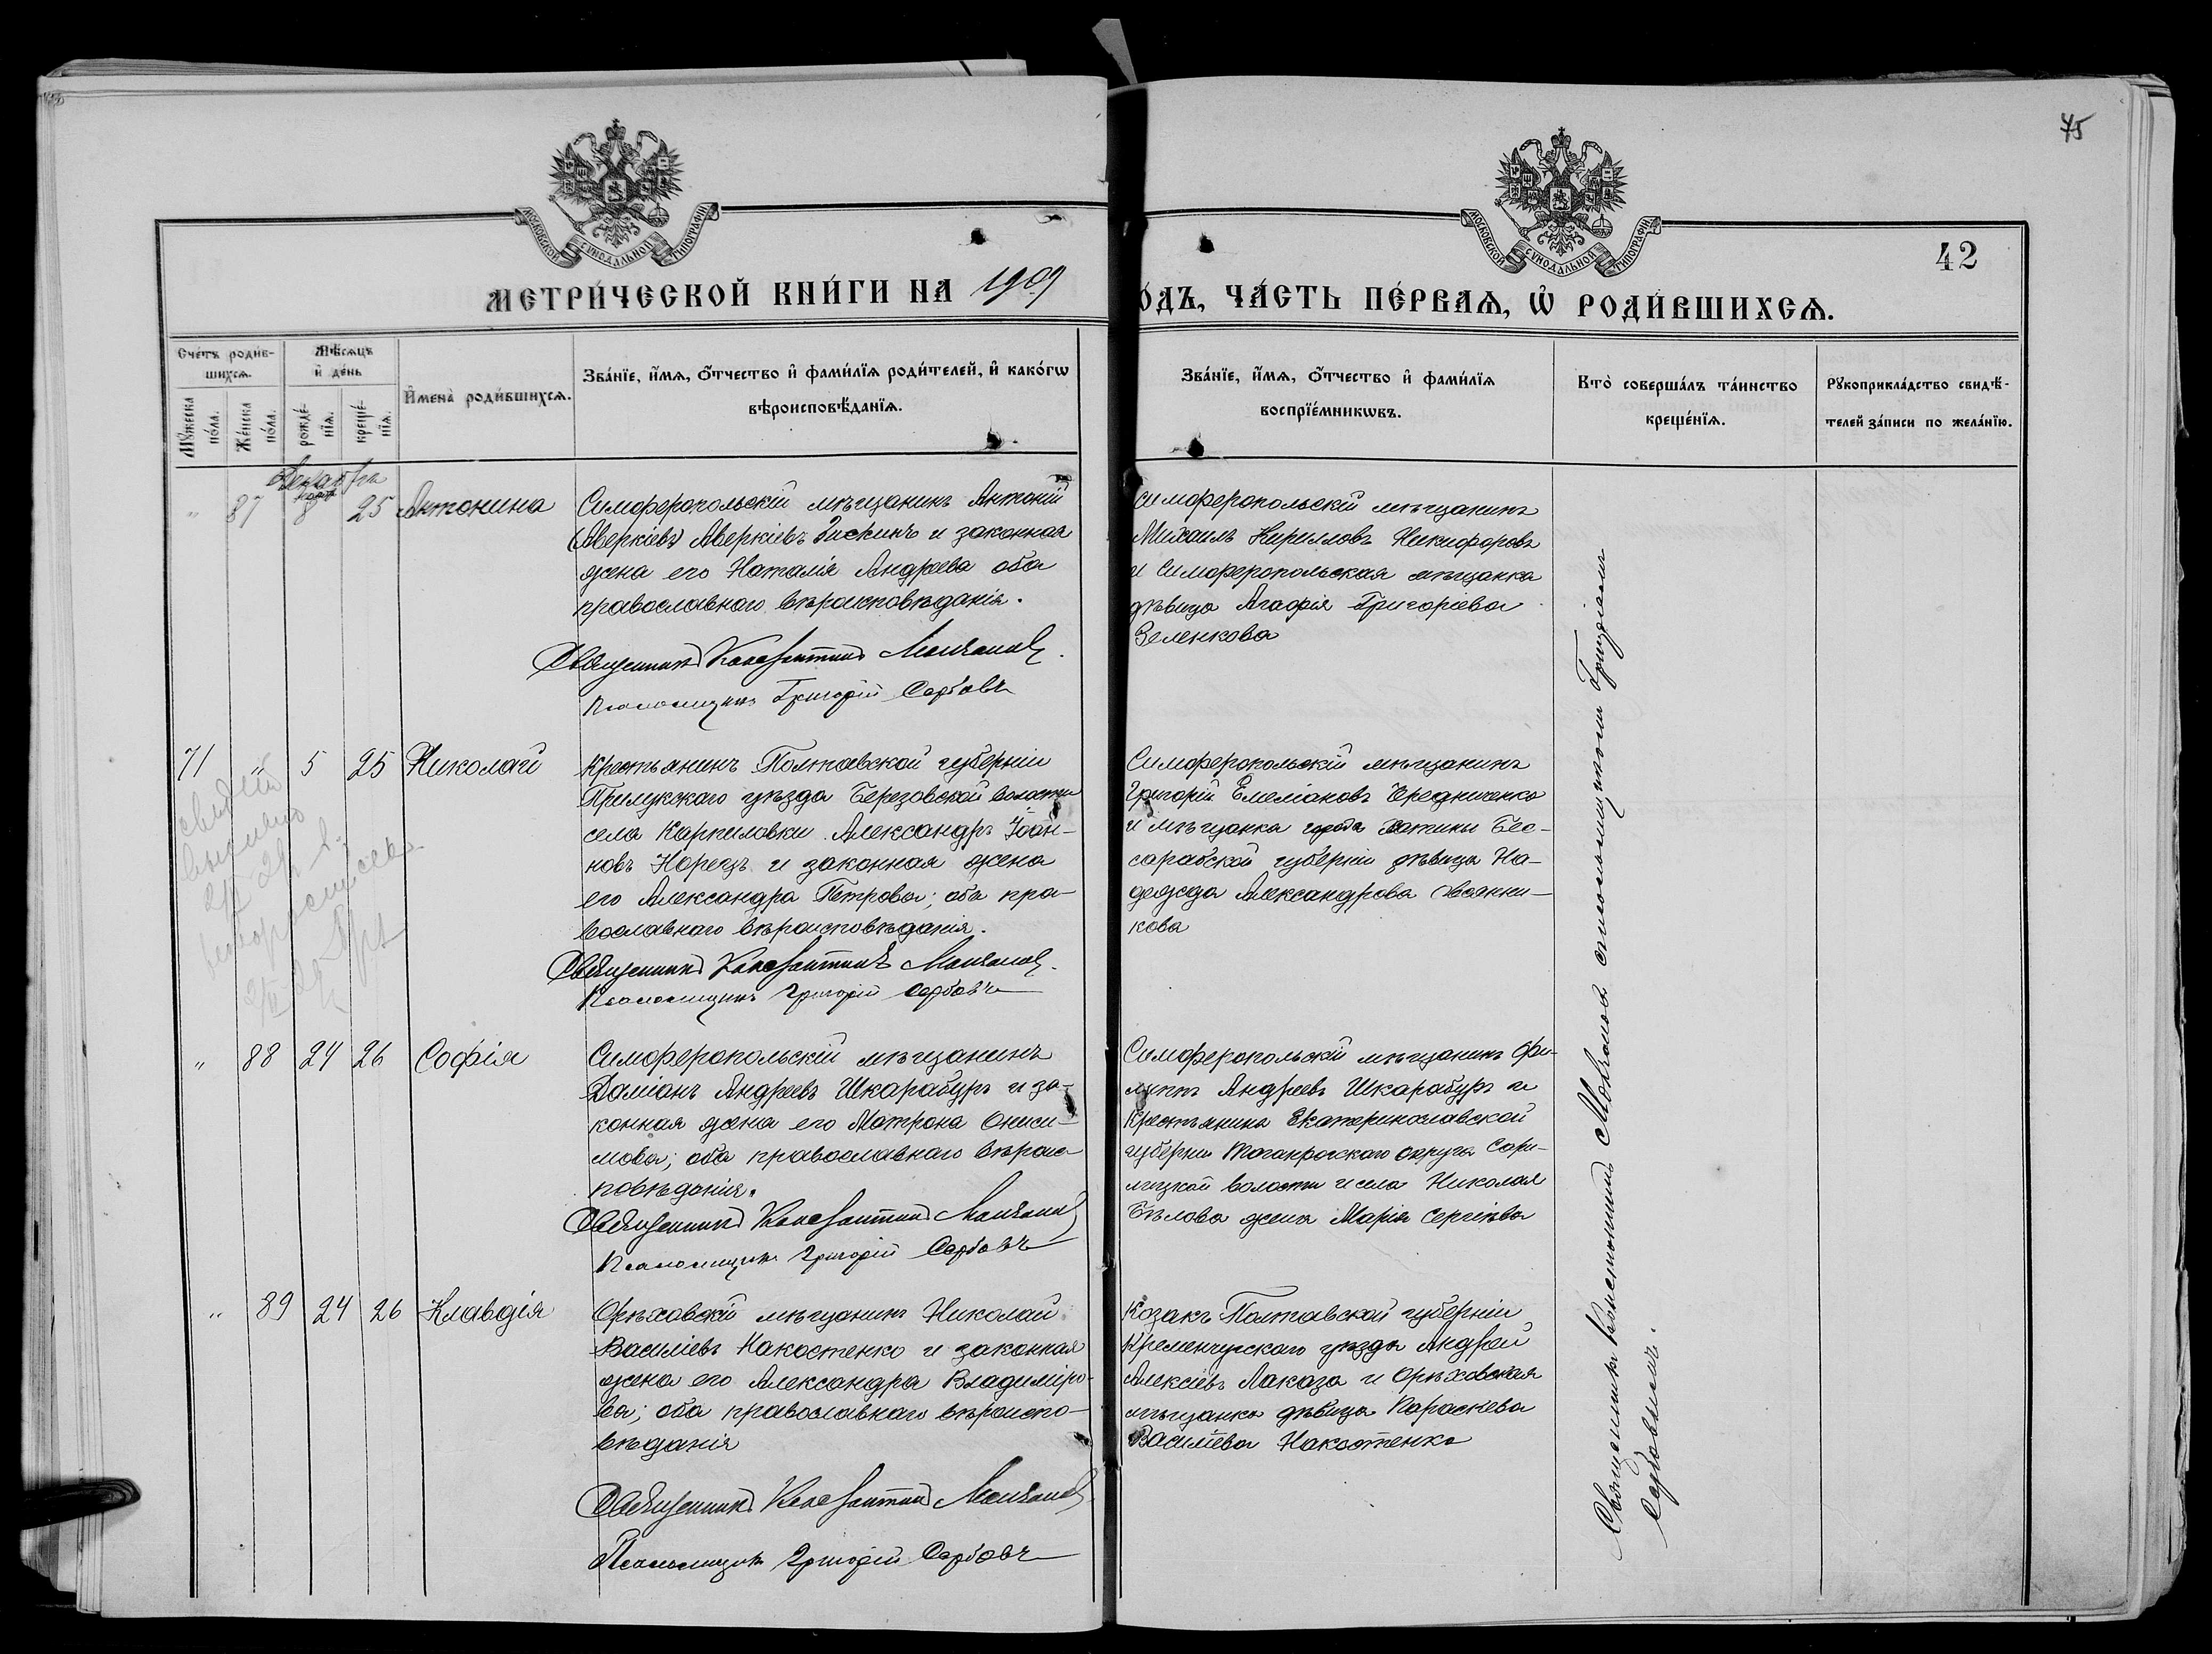 75
МОСКОВСКОЙ СѴНОДАЛЬНОЙ ТИПОГРАФІИ
МОСКОВСКОЙ СѴНОДАЛЬНОЙ ТИПОГРАФІИ
42
МЕТРИ́ЧЕСКОЙ КНИ́ГИ НА 1909
ОДЪ, ЧА́СТЬ ПЕ́РВАѦ, Ѡ҆ РОДИ́ВШИХСѦ.
Сче́тъ роди́в-
шихсѧ.
Мꙋ́жеска по́ла.
Же́нска по́ла.
Мѣ́сѧцъ
и҆ де́нь
рожде́-
нїѧ.
креще́-
нїѧ.
И҆мена̀ роди́вшихсѧ.
Зва́нїе, и҆́мѧ, ѻ҆́тчество и҆ фами́лїѧ роди́телей, и҆ како́гѡ
вѣроисповѣ́данїѧ.
Зва́нїе, и҆́мѧ, ѻ҆́тчество и҆ фами́лїѧ
воспрїе́мникѡвъ.
Кто̀ соверша́лъ та́инство
креще́нїѧ.
Рꙋкоприкла́дство свидѣ́-
телей за́писи по жела́нїю.
Декабрь
" 87 8 25 Антонина
Симферопольскій мѣщанинъ Антоній
(Аверкіевъ) Аверкіевъ Зискинъ и законная
жена его Наталія Андреева оба
православнаго вѣроисповѣданія.
Священникъ Константинъ Молчановъ.
Псаломщикъ Григорій Сербовъ
Симферопольскій мѣщанинъ
Михаилъ Кирилловъ Никифоровъ
и Симферопольская мѣщанка
дѣвица Агафія Григоріева
Зеленкова
71 " 5 25 Николай
Крестьянинъ Полтавской губерніи
Прилукскаго уѣзда Березовской волости
села Карпиловки Александръ Іоан-
новъ Корецъ и законная жена
его Александра Петрова; оба пра-
вославнаго вѣроисповѣданія.
Священникъ Константинъ Молчановъ.
Псаломщикъ Григорій Сербовъ
Симферопольскій мѣщанинъ
Григорій Емеліановъ Чередниченко
и мѣщанка города Хотины Бес-
сарабской губерніи дѣвица На-
дежда Александрова Овсянни-
кова
" 88 24 26 Софія
Симферопольскій мѣщанинъ
Даміанъ Андреевъ Шкарабуръ и за-
конная жена его Матрона Ониси-
мова; оба православнаго вѣроис-
повѣданія.
Священникъ Константинъ Молчановъ
Псаломщикъ Григорій Сербовъ
Симферопольскій мѣщанинъ Фи-
липпъ Андреевъ Шкарабуръ и
Крестьянина Екатеринославской
губерніи Таганрогскаго округа
волости и села Николая
Бѣлова жена Марія Сергіева
" 89 24 26 Клавдія
Орѣховскій мѣщанинъ Николай
Василіевъ Накостенко и законная
жена его Александра Владиміро-
ва; оба православнаго вѣроиспо-
вѣданія
Священникъ Константинъ Молчановъ
Псаломщикъ Григорій Сербовъ
Козакъ Полтавской губерніи
Кременчугскаго уѣзда Андрей
Алексіевъ Лаказа и Орѣховская
мѣщанка дѣвица Параскева
Василіева Накостенко
Священникъ Константинъ Молчановъ съ псаломщикомъ Григоріемъ
Сербовымъ.